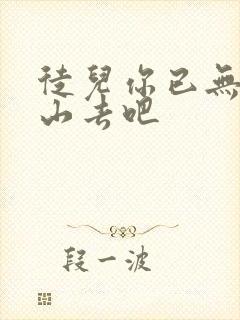 徒兒你已無
山去吧
段一波